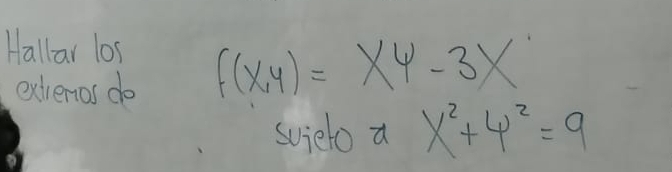 Hallar los
extremos de
f(x,y) = xy - 3x
sujeto a x² + y² = 9